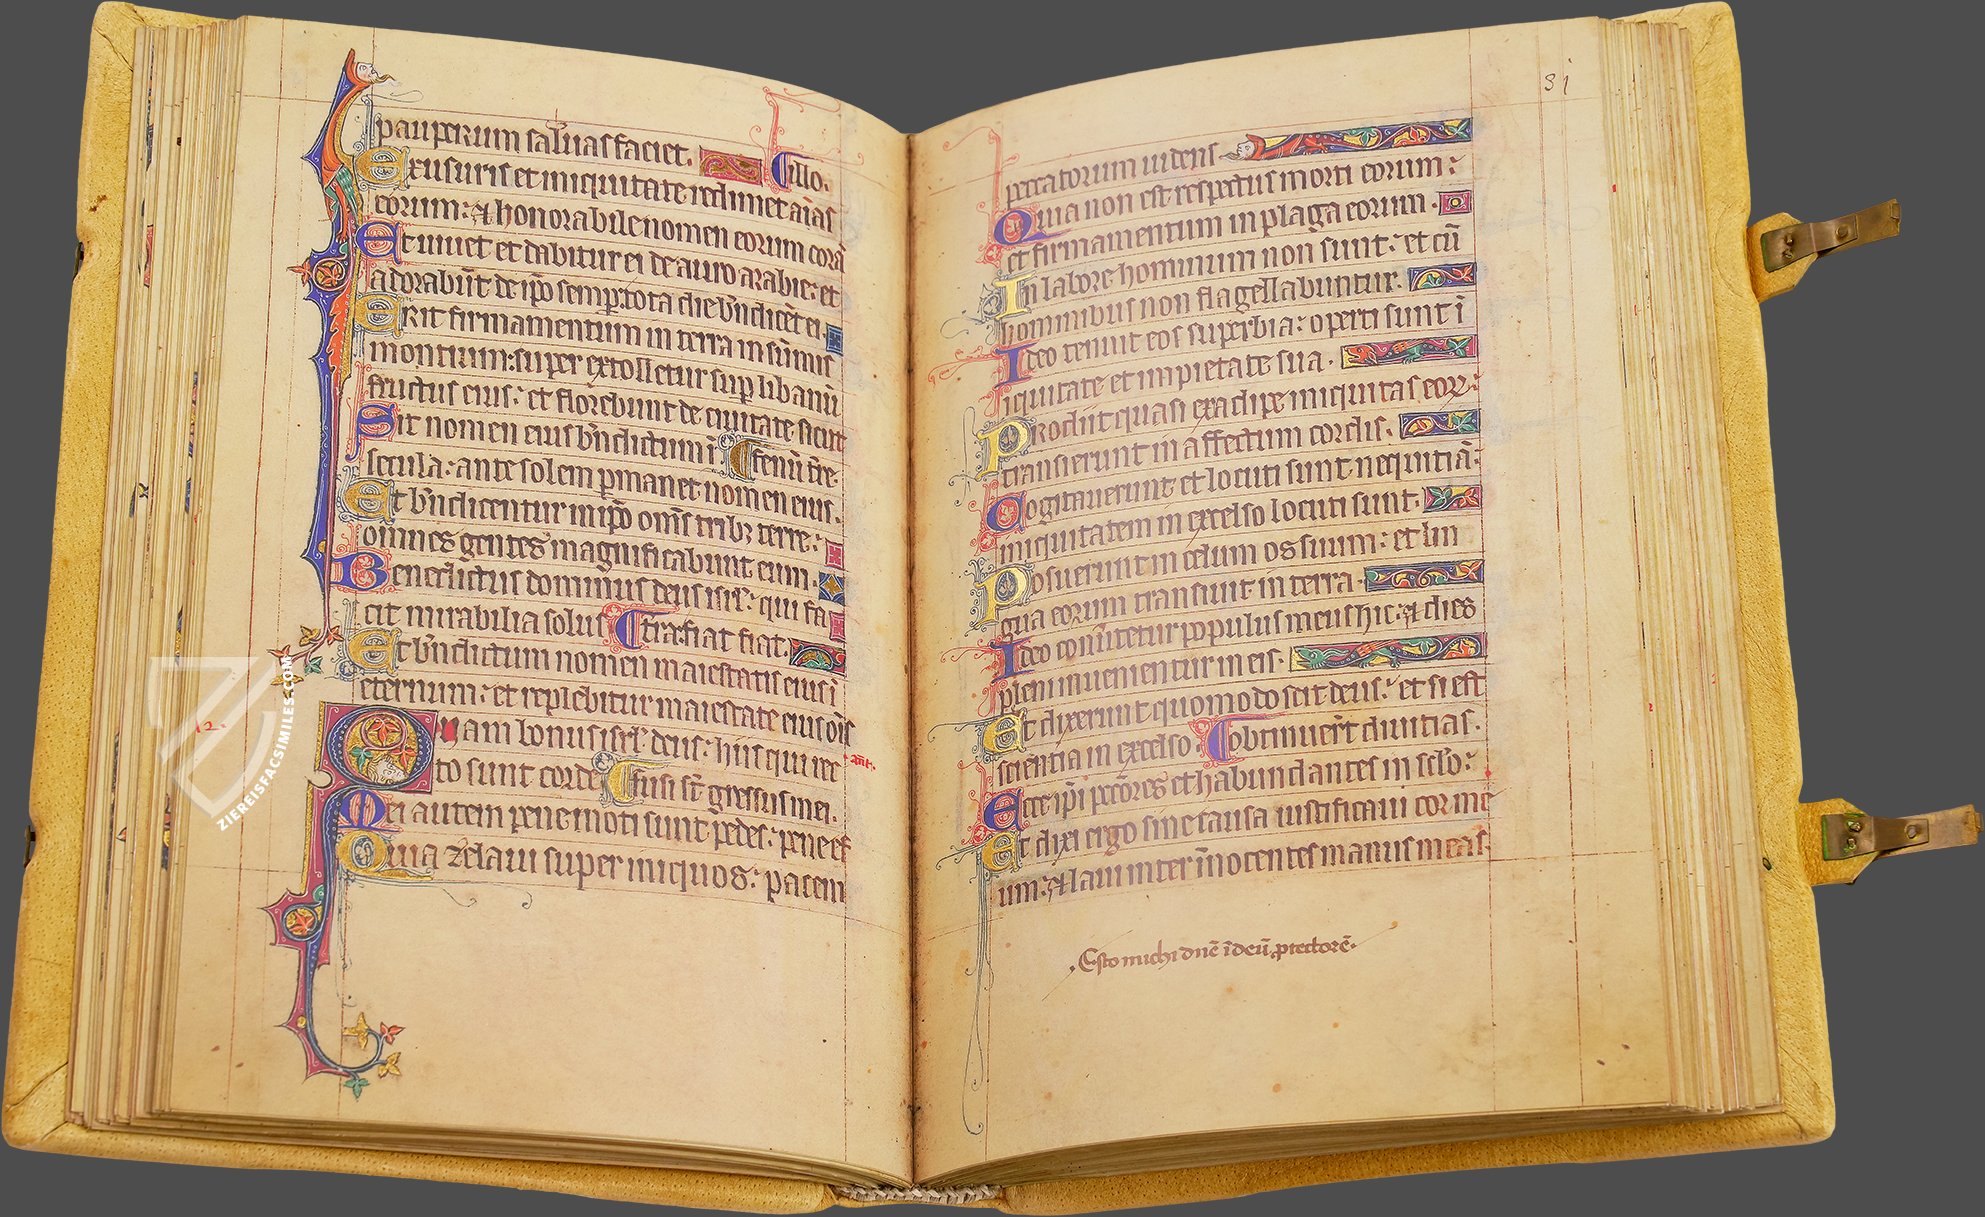 pauperum saluas faciet. illo.
Ex usuris et iniquitate redimet aīas
eorum: & honorabile nomen eorum corā
Et uiuet et dabitur ei de auro arabie: et
adorabūt de ip̄o semp tota die bn̄dicēt ei.
Erit firmamentum in terra in sūmis
montium: super extolletur sup libanū
fructus eius: et florebunt de ciuitate sicut
Sit nomen eius bn̄dictum ī fenū tr̄e.
secula: ante solem p̄manet nomen eius.
Et bn̄dicentur in ip̄o om̄s tribꝫ terre:
omnes gentes magnificabunt eum.
Benedictus dominus deus isrl̄: qui fa
cit mirabilia solus tra: fiat fiat.
Et bn̄dictum nomen maiestatis eius ī
eternum: et replebitur maiestate eius ōis
Quam bonus isrl̄ deus: hiis qui rec
to sunt corde fusi st̄ gressus mei.
Mei autem pene moti sunt pedes: pene ef
Quia zelaui super iniquos: pacem
12.
31
peccatorum uidens
Quia non est respectus morti eorum:
et firmamentum in plaga eorum.
In labore hominum non sunt: et cū
hominibus non flagellabuntur.
Ideo tenuit eos superbia: operti sunt ī
iquitate et impietate sua.
Prodiit quasi ex adipe iniquitas eoꝝ:
transierunt in affectum cordis.
Cogitauerunt et locuti sunt nequitiā:
iniquitatem in excelso locuti sunt.
Posuerunt in celum os suum: et lin
gua eorum transiuit in terra.
Ideo conūtetur populus meus hic: & dies
pleni inuenientur in eis.
Et dixerunt quomodo scit deus: et si est
scientia in excelso obtinuer̄t diuitias.
Ecce ip̄i pec̄ores et habundantes in sc̄lo:
Et dixi ergo sine causa iustificaui cor me
um: & laui inter īnocentes manus meas.
Esto michi dn̄e ī deū p̄tectorē.
ZIEREISFACSIMILES.COM